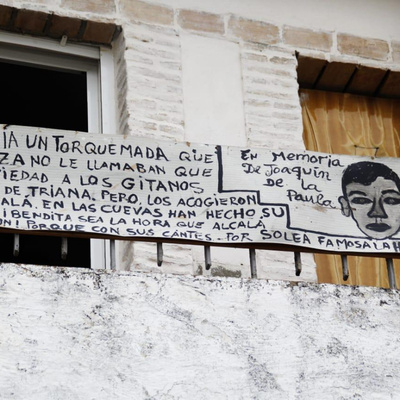 IA UN TORQUEMADA QUE
ZA NO LE LLAMABAN QUE
IEDAD A LOS GITANOS
DE TRIANA. PERO, LOS ACOGIERON
ALÁ, EN LAS CUEVAS HAN HECHO, SU
¡BENDITA SEA LA HORA QUE ALCALÁ
ON! PORQUE CON SUS CANTES. POR SOLEA FAMOSA LA H
EN MEMORIA
DE JOAQUIN
DE LA
PAULA